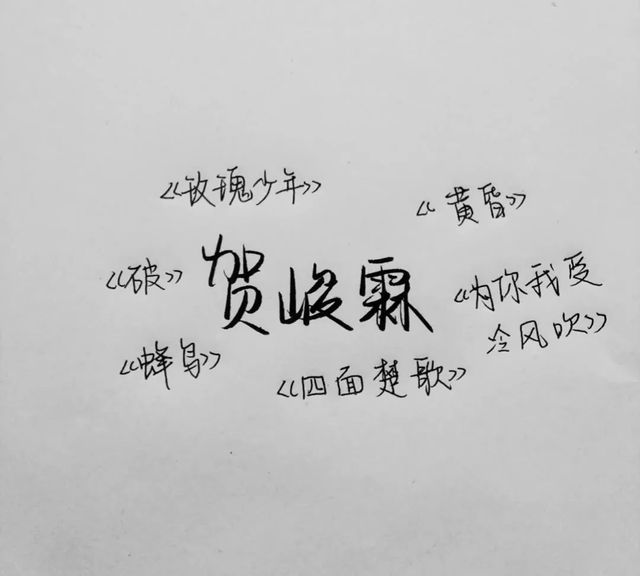 《玫瑰少年》
《黄昏》
《破》
贺峻霖
《为你我受
冷风吹》
《蜂鸟》
《四面楚歌》